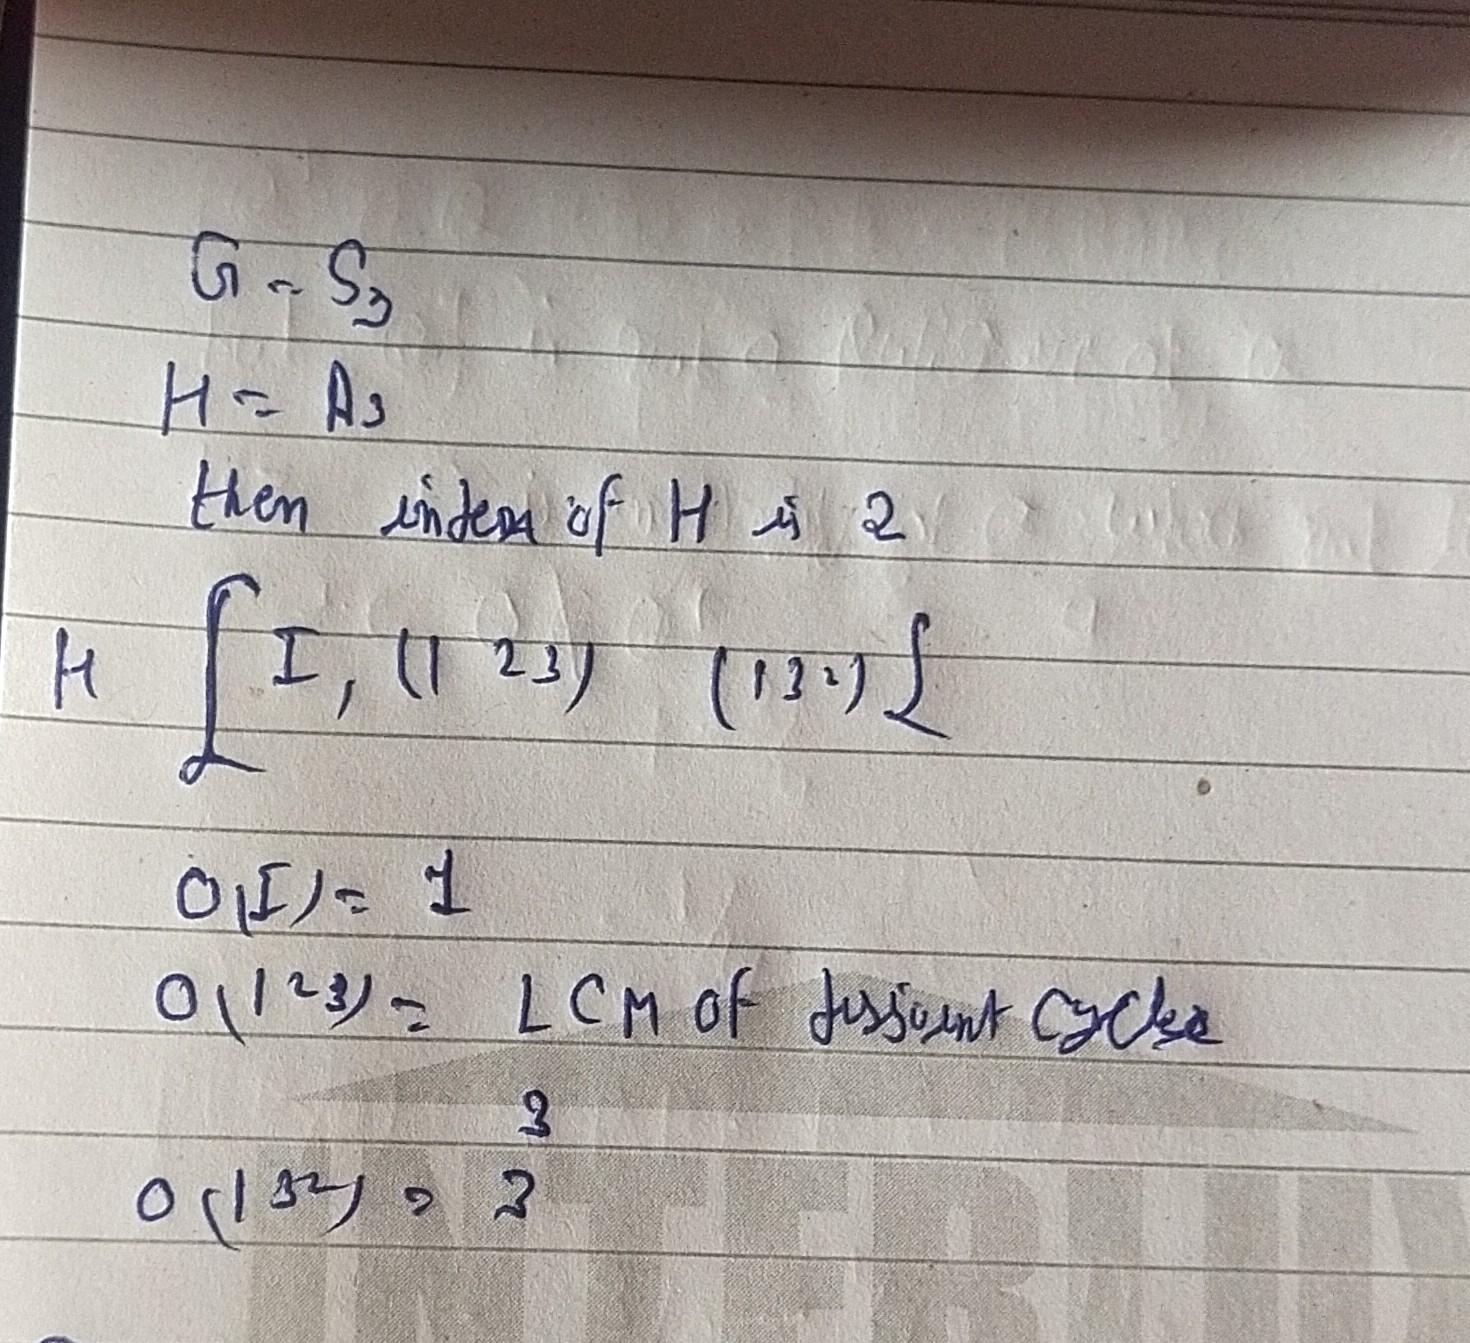 G = S3
H = A3
then index of H is 2
H { I, (1 2 3) (1 3 2) }
O(I) = 1
O(1 2 3) = LCM of disjoint cycles
3
O(1 3 2) = 3
INTERN